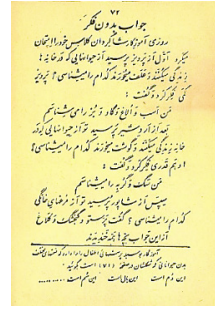 جواب بدون فکر
روزی آموزگار شاگردان کلاس خود را امتحان
میکرد اول از پرویز پرسید از حیواناتی که در خانه ها
زندگی میکنند و علف میخورند کدام را میشناسی؟ پرویز
کمی فکر کرد و گفت :
من اسب و الاغ و گاو و بز را می شناسم
بعد از اردشیر پرسید تو از حیواناتی که در
خانه زندگی میکنند و گوشت میخورند کدام را میشناسی؟
او هم قدری فکر کرد و گفت :
من سگ و گربه را میشناسم
سپس از شاپور پرسید تو از مرغهای خانگی
کدام را میشناسی؟ گفت پرستو و گنجشک و کلاغ
از این جواب بچه ها خنده
آموزگار
این دُم است این بال است این شُم است